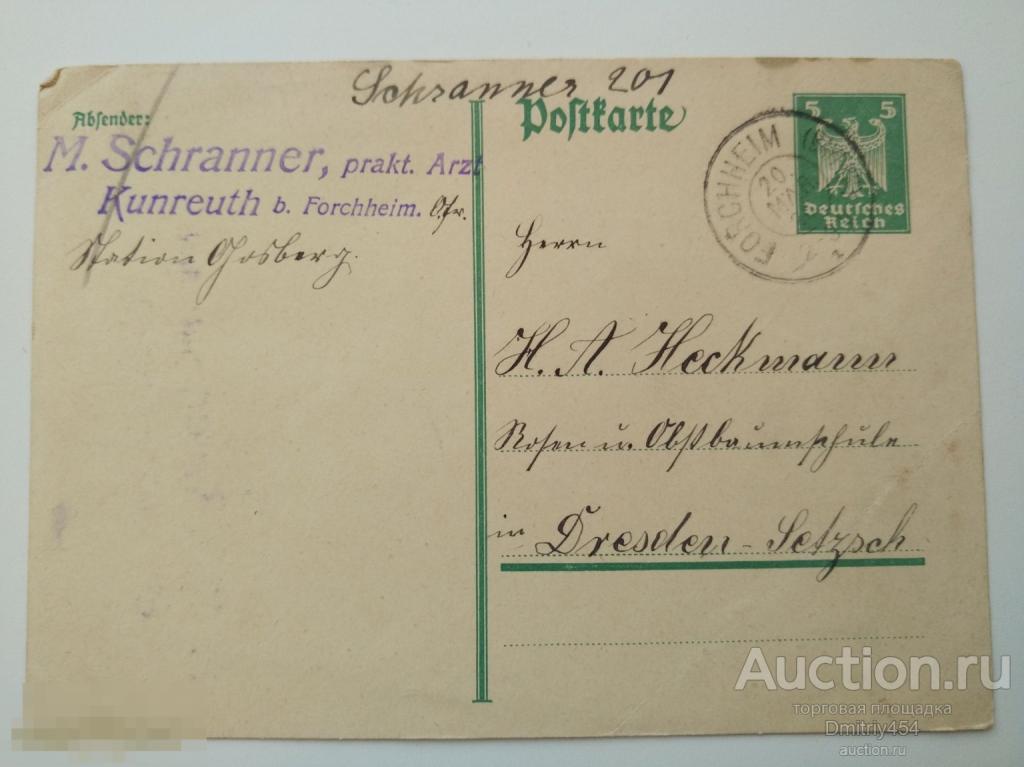 Schranner 201
Absender:
M. Schranner, prakt. Arzt
Kunreuth b. Forchheim. Ofr.
Station Gosberg.
Postkarte
5 5
Deutsches
Reich
FORCHHEIM
20.
MAR
Herrn
H. A. Heckmann
Rosen u. Obstbaumschule
in Dresden-Setzsch
Auction.ru
торговая площадка
Dmitriy454
auction.ru